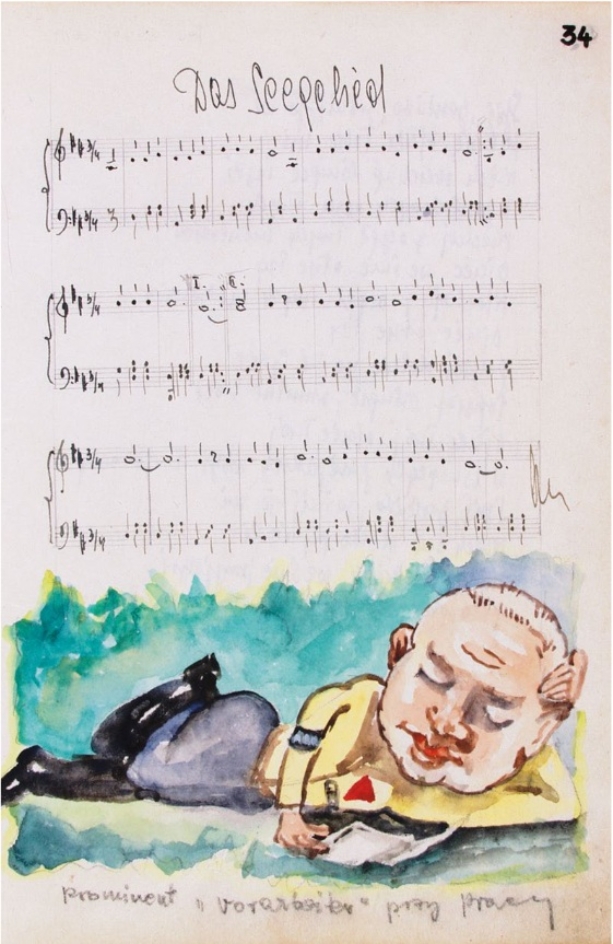 34
Das Seegelied
prominent „vorarbeiter" przy pracy